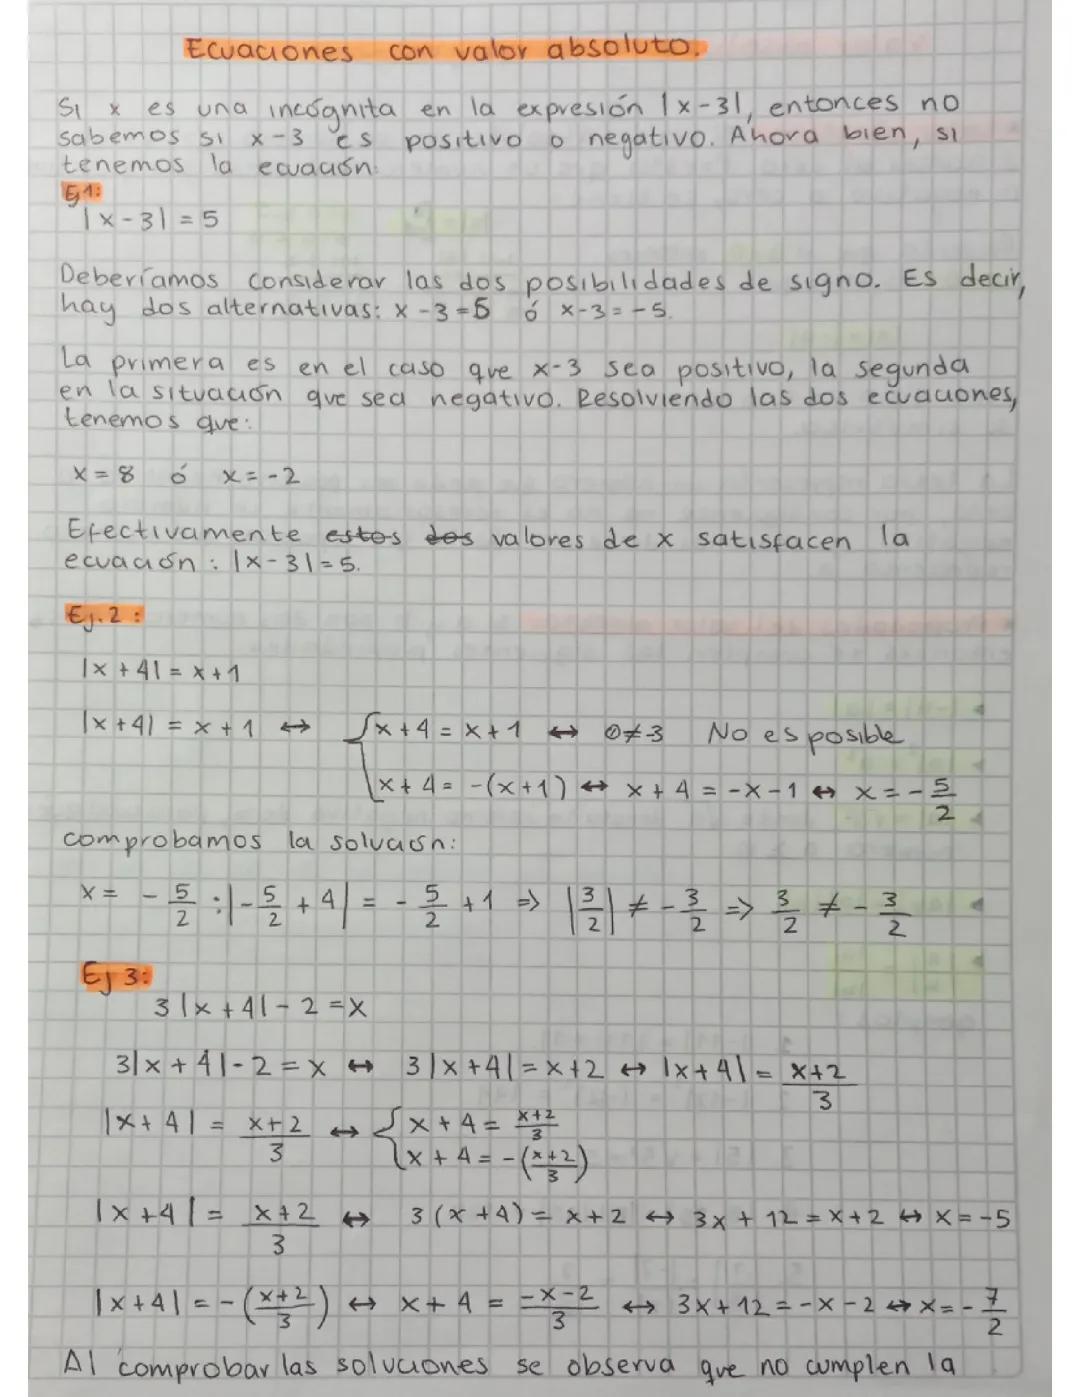 Ecuaciones con valor absoluto.
Si x es una incógnita en la expresión |x-3|, entonces no
sabemos si x-3 es positivo o negativo. Ahora bien, si
tenemos la ecuación:
Ej 1:
|x-3| = 5
Deberíamos considerar las dos posibilidades de signo. Es decir,
hay dos alternativas: x-3=5 ó x-3=-5.
La primera es en el caso que x-3 sea positivo, la segunda
en la situación que sea negativo. Resolviendo las dos ecuaciones,
tenemos que:
x = 8 ó x = -2
Efectivamente estos dos valores de x satisfacen la
ecuación: |x-3|=5.
Ej. 2:
|x+4| = x+1
|x+4| = x+1 ↔ { x+4 = x+1 ↔ 0≠-3 No es posible
x+4 = -(x+1) ↔ x+4 = -x-1 ↔ x = -5/2
comprobamos la solución:
x = -5/2 : |-5/2 + 4| = -5/2 + 1 => |3/2| ≠ -3/2 => 3/2 ≠ -3/2
Ej 3:
3|x+4|-2=x
3|x+4|-2=x ↔ 3|x+4|=x+2 ↔ |x+4| = x+2/3
|x+4| = x+2/3 ↔ { x+4 = x+2/3
x+4 = -(x+2/3)
|x+4| = x+2/3 ↔ 3(x+4) = x+2 ↔ 3x+12=x+2 ↔ x=-5
|x+4| = -(x+2/3) ↔ x+4 = -x-2/3 ↔ 3x+12=-x-2 ↔ x=-7/2
Al comprobar las soluciones se observa que no cumplen la